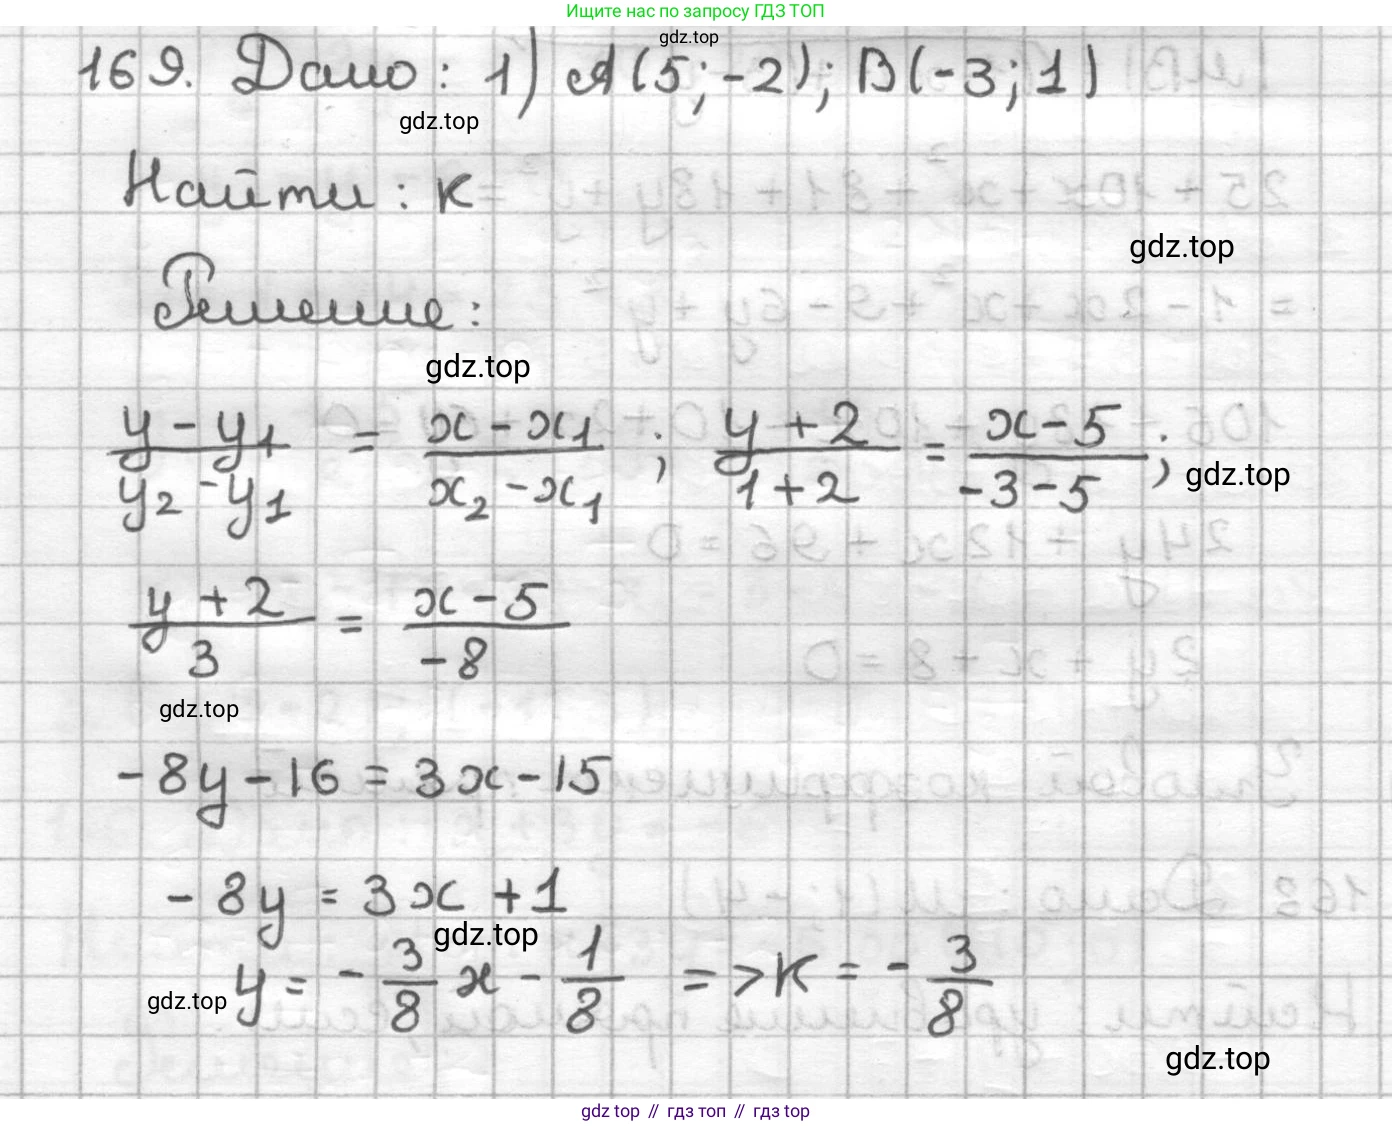 Ищите нас по запросу ГДЗ ТОП
gdz.top
169. Дано: 1) A(5; -2); B(-3; 1)
gdz.top
Найти: к
gdz.top
Решение:
gdz.top
(y - y₁)/(y₂ - y₁) = (x - x₁)/(x₂ - x₁); (y + 2)/(1 + 2) = (x - 5)/(-3 - 5); gdz.top
(y + 2)/3 = (x - 5)/(-8)
gdz.top
-8y - 16 = 3x - 15
-8y = 3x + 1
gdz.top
y = -3/8 x - 1/8 => к = -3/8
gdz.top
gdz.top
gdz top // гдз топ // гдз top